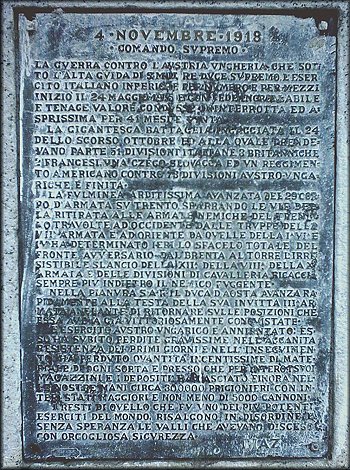 4·NOVEMBRE·1918
·COMANDO SVPREMO·
LA GVERRA CONTRO L'AVSTRIA VNGHERIA CHE SOT
TO L'ALTA GVIDA DI S.M. IL RE DVCE SVPREMO L'ESER
CITO ITALIANO INFERIORE PER NVMERO E PER MEZZI
INIZIO IL 24 MAGGIO 1915 E CON FEDE INCROLLABILE
E TENACE VALORE CONDVSSE ININTERROTTA ED A
SPRISSIMA PER 41 MESI E VINTA
LA GIGANTESCA BATTAGLIA INGAGGIATA IL 24
DELLO SCORSO OTTOBRE ED ALLA QVALE PRENDE
VANO PARTE 51 DIVISIONI ITALIANE 3 BRITANNICHE
2 FRANCESI VNA CZECO SLOVACCA ED VN REGGIMEN
TO AMERICANO CONTRO 73 DIVISIONI AVSTRO VNGA
RICHE E FINITA
LA FVLMINEA ARDITISSIMA AVANZATA DEL 29 COR
PO D'ARMATA SV TRENTO SBARRANDO LE VIE DEL
LA RITIRATA ALLE ARMATE NEMICHE DEL TRENTI
NO TRAVOLTE AD OCCIDENTE DALLE TRVPPE DELLA
VII ARMATA E AD ORIENTE DA QVELLE DELLA I VI E
IV HA DETERMINATO IERI LO SFACELO TOTALE DEL
FRONTE AVVERSARIO DAL BRENTA AL TORRE L'IRRE
SISTIBILE SLANCIO DELLA XII DELLA VIII DELLA X
ARMATA E DELLE DIVISIONI DI CAVALLERIA RICACCIA
SEMPRE PIV INDIETRO IL NEMICO FVGGENTE
NELLA PIANVRA S.A.R. IL DVCA D'AOSTA AVANZA RA
PIDAMENTE ALLA TESTA DELLA SVA INVITTA III AR
MATA ANELANTE DI RITORNARE SVLLE POSIZIONI CHE
ESSA AVEVA GIA VITTORIOSAMENTE CONQVISTATE
L'ESERCITO AVSTRO VNGARICO E ANNIENTATO ES
SO HA SVBITO PERDITE GRAVISSIME NELL'ACCANITA
RESISTENZA DEI PRIMI GIORNI E NELL'INSEGVIMEN
TO HA PERDVTO QVANTITA INGENTISSIME DI MATE
RIALE DI OGNI SORTA E PRESSO CHE PER INTERO I SVOI
MAGAZZINI E I DEPOSITI HA LASCIATO FINORA NEL
LE NOSTRE MANI CIRCA 300000 PRIGIONIERI CON IN
TERI STATI MAGGIORI E NON MENO DI 5000 CANNONI
I RESTI DI QVELLO CHE FV VNO DEI PIV POTENTI
ESERCITI DEL MONDO RISALGONO IN DISORDINE E
SENZA SPERANZA LE VALLI CHE AVEVANO DISCESO
CON ORGOGLIOSA SICVREZZA